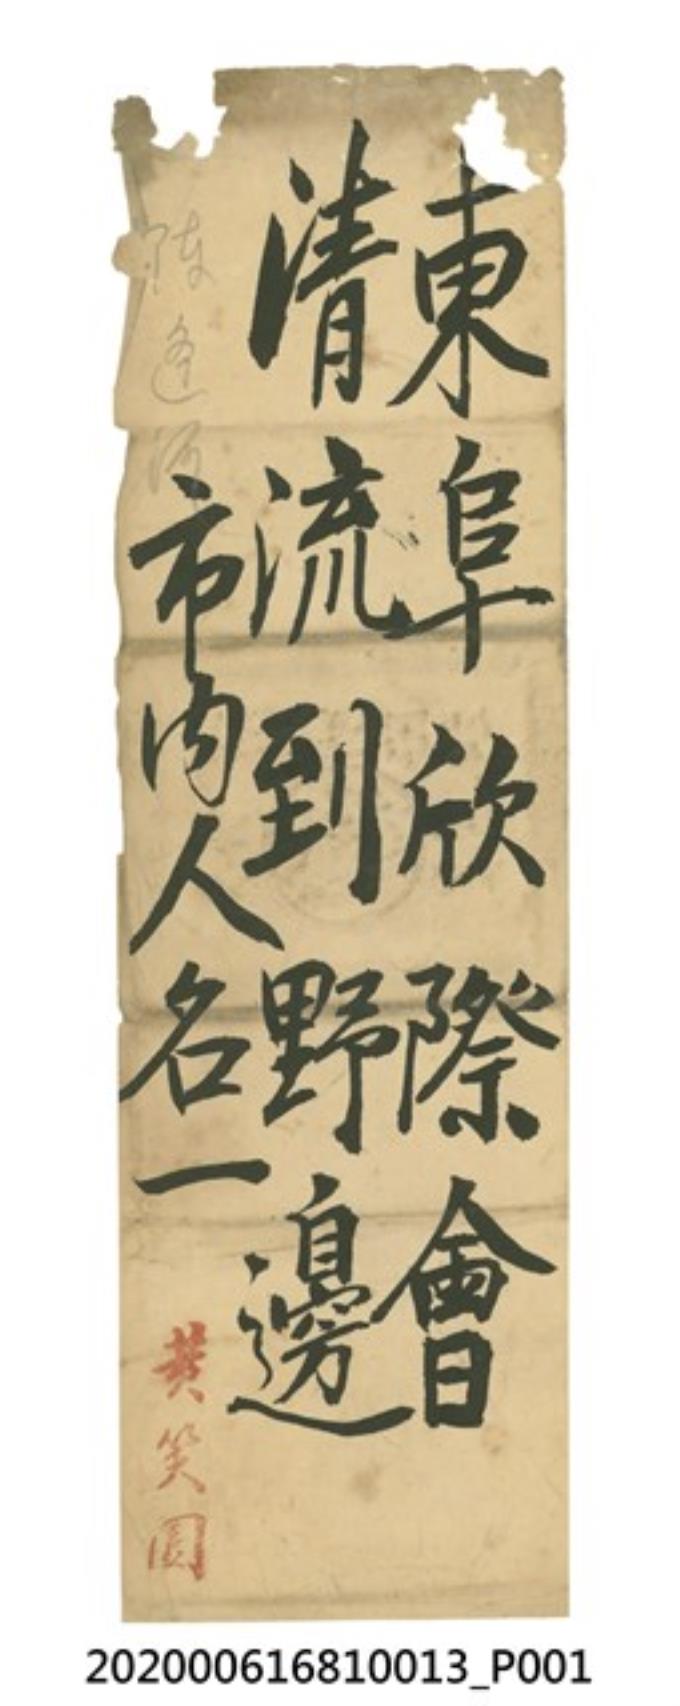 東阜欣際會
清流到野邊
市内人名一
黄笑園
陳逢源
202000616810013_P001